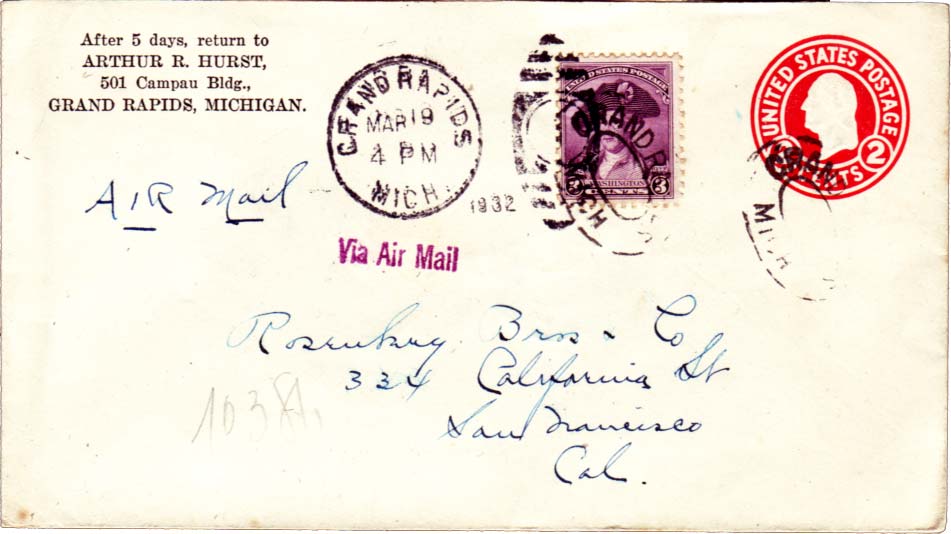 After 5 days, return to
ARTHUR R. HURST,
501 Campau Bldg.,
GRAND RAPIDS, MICHIGAN.
GRAND RAPIDS
MAR 19
4 PM
MICH.
1932
UNITED STATES POSTAGE
3 WASHINGTON 3
CENTS
GRAND R
MICH
UNITED STATES POSTAGE
2 CENTS
GRAND
MICH
AIR Mail
Via Air Mail
Rosenberg Bros & Co
334 California St
San Francisco
Cal.